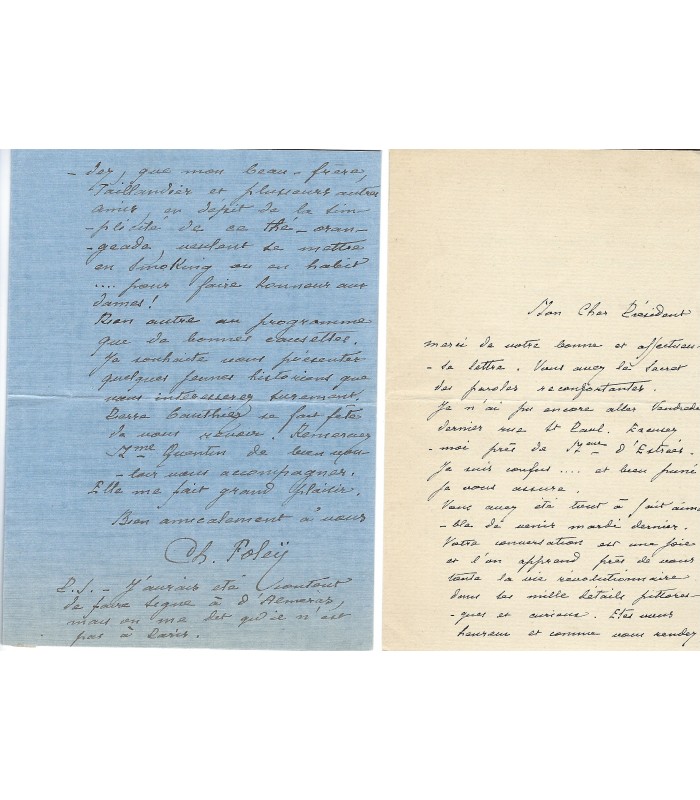 -der, que mon beau-frère,
Taillandier et plusieurs autres
amis, en dépit de la sim
-plicité de ce thé-oran-
-geade, veulent se mettre
en smoking ou en habit
.... pour faire honneur aux
dames!
Rien autre au programme
que de bonnes causettes.
Je souhaite vous présenter
quelques jeunes historiens que
vous intéresserez surement.
Pierre Gauthiez se fait fête
de vous revoir. Remerciez
Mme Quentin de bien vou-
-loir vous accompagner.
Elle me fait grand plaisir.
Bien amicalement à vous
Ch. Foleÿ
P.S. - J'aurais été content
de faire signe à d'Almeras,
mais on me dit qu'il n'est
pas à Paris.
Mon Cher Président
merci de votre bonne et affectueu-
-se lettre. Vous avez le secret
des paroles reconfortantes.
Je n'ai pu encore aller Vendredi
dernier rue St Paul. Excusez
-moi près de Mme d'Estrées.
Je suis confus .... et bien puni
je vous assure.
Vous avez été tout à fait aima-
-ble de venir mardi dernier.
Votre conversation est une joie
et l'on apprend près de vous
toute la vie revolutionnaire
dans ses mille détails pittores-
-ques et curieux. Etes vous
heureux et comme vous rendez